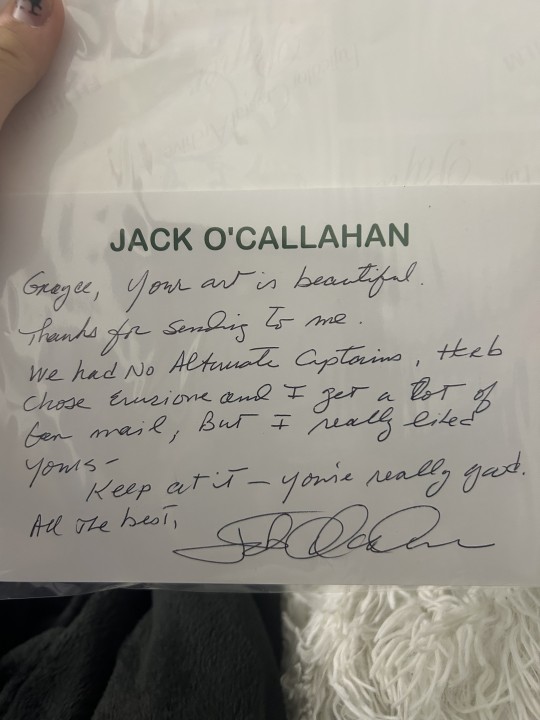 JACK O'CALLAHAN
Graycee, Your art is beautiful.
Thanks for sending to me.
We had No Alternate Captains, Herb
chose Eruzione and I get a lot of
fan mail, But I really liked
yours-
Keep at it - you're really good.
All the best,